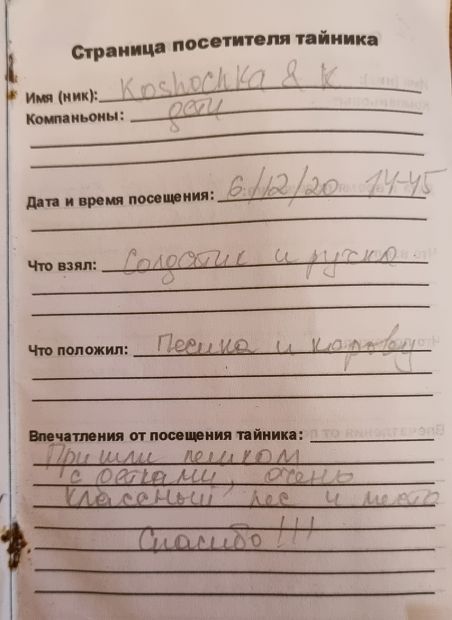 Страница посетителя тайника
Имя (ник): Koshochka & K
Компаньоны: дети
Дата и время посещения: 6/12/20 14-45
Что взял: Солдатик и ручка
Что положил: Песика и корову
Впечатления от посещения тайника:
Пришли пешком
с детками, очень
классный лес и место
Спасибо!!!